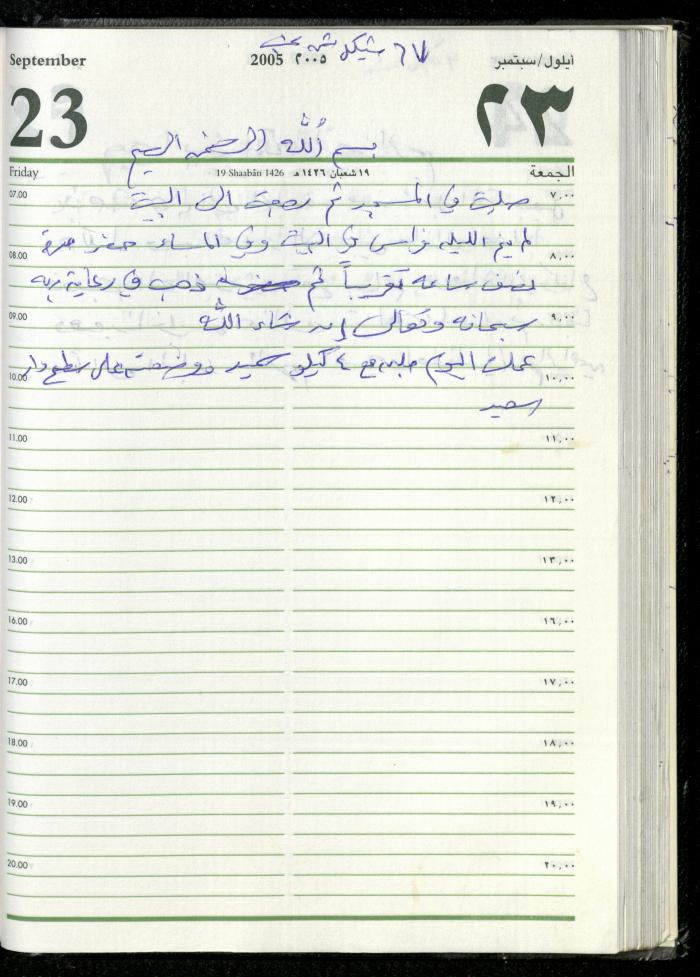 ٦٧ شيكل
September 2005 ٢٠٠٥ أيلول/سبتمبر
23 ٢٣
بسم الله الرحمن الرحيم
Friday 19 Shaabân 1426 ١٩ شعبان ١٤٢٦ هـ الجمعة
07.00 ٧,٠٠
صليت في المسجد ثم رجعت الى البيت
لم ينم الليله فراس في البيت وفي المساء حضر
08.00 ٨,٠٠
نصف ساعه تقريباً ثم ذهب في رعاية ربه
09.00 ٩,٠٠
سبحانه وتعالى إن شاء الله
عملت اليوم مع ٤ كيلو سميد ووضعته على سطح دار
10.00 ١٠,٠٠
اسعيد
11.00 ١١,٠٠
12.00 ١٢,٠٠
13.00 ١٣,٠٠
16.00 ١٦,٠٠
17.00 ١٧,٠٠
18.00 ١٨,٠٠
19.00 ١٩,٠٠
20.00 ٢٠,٠٠